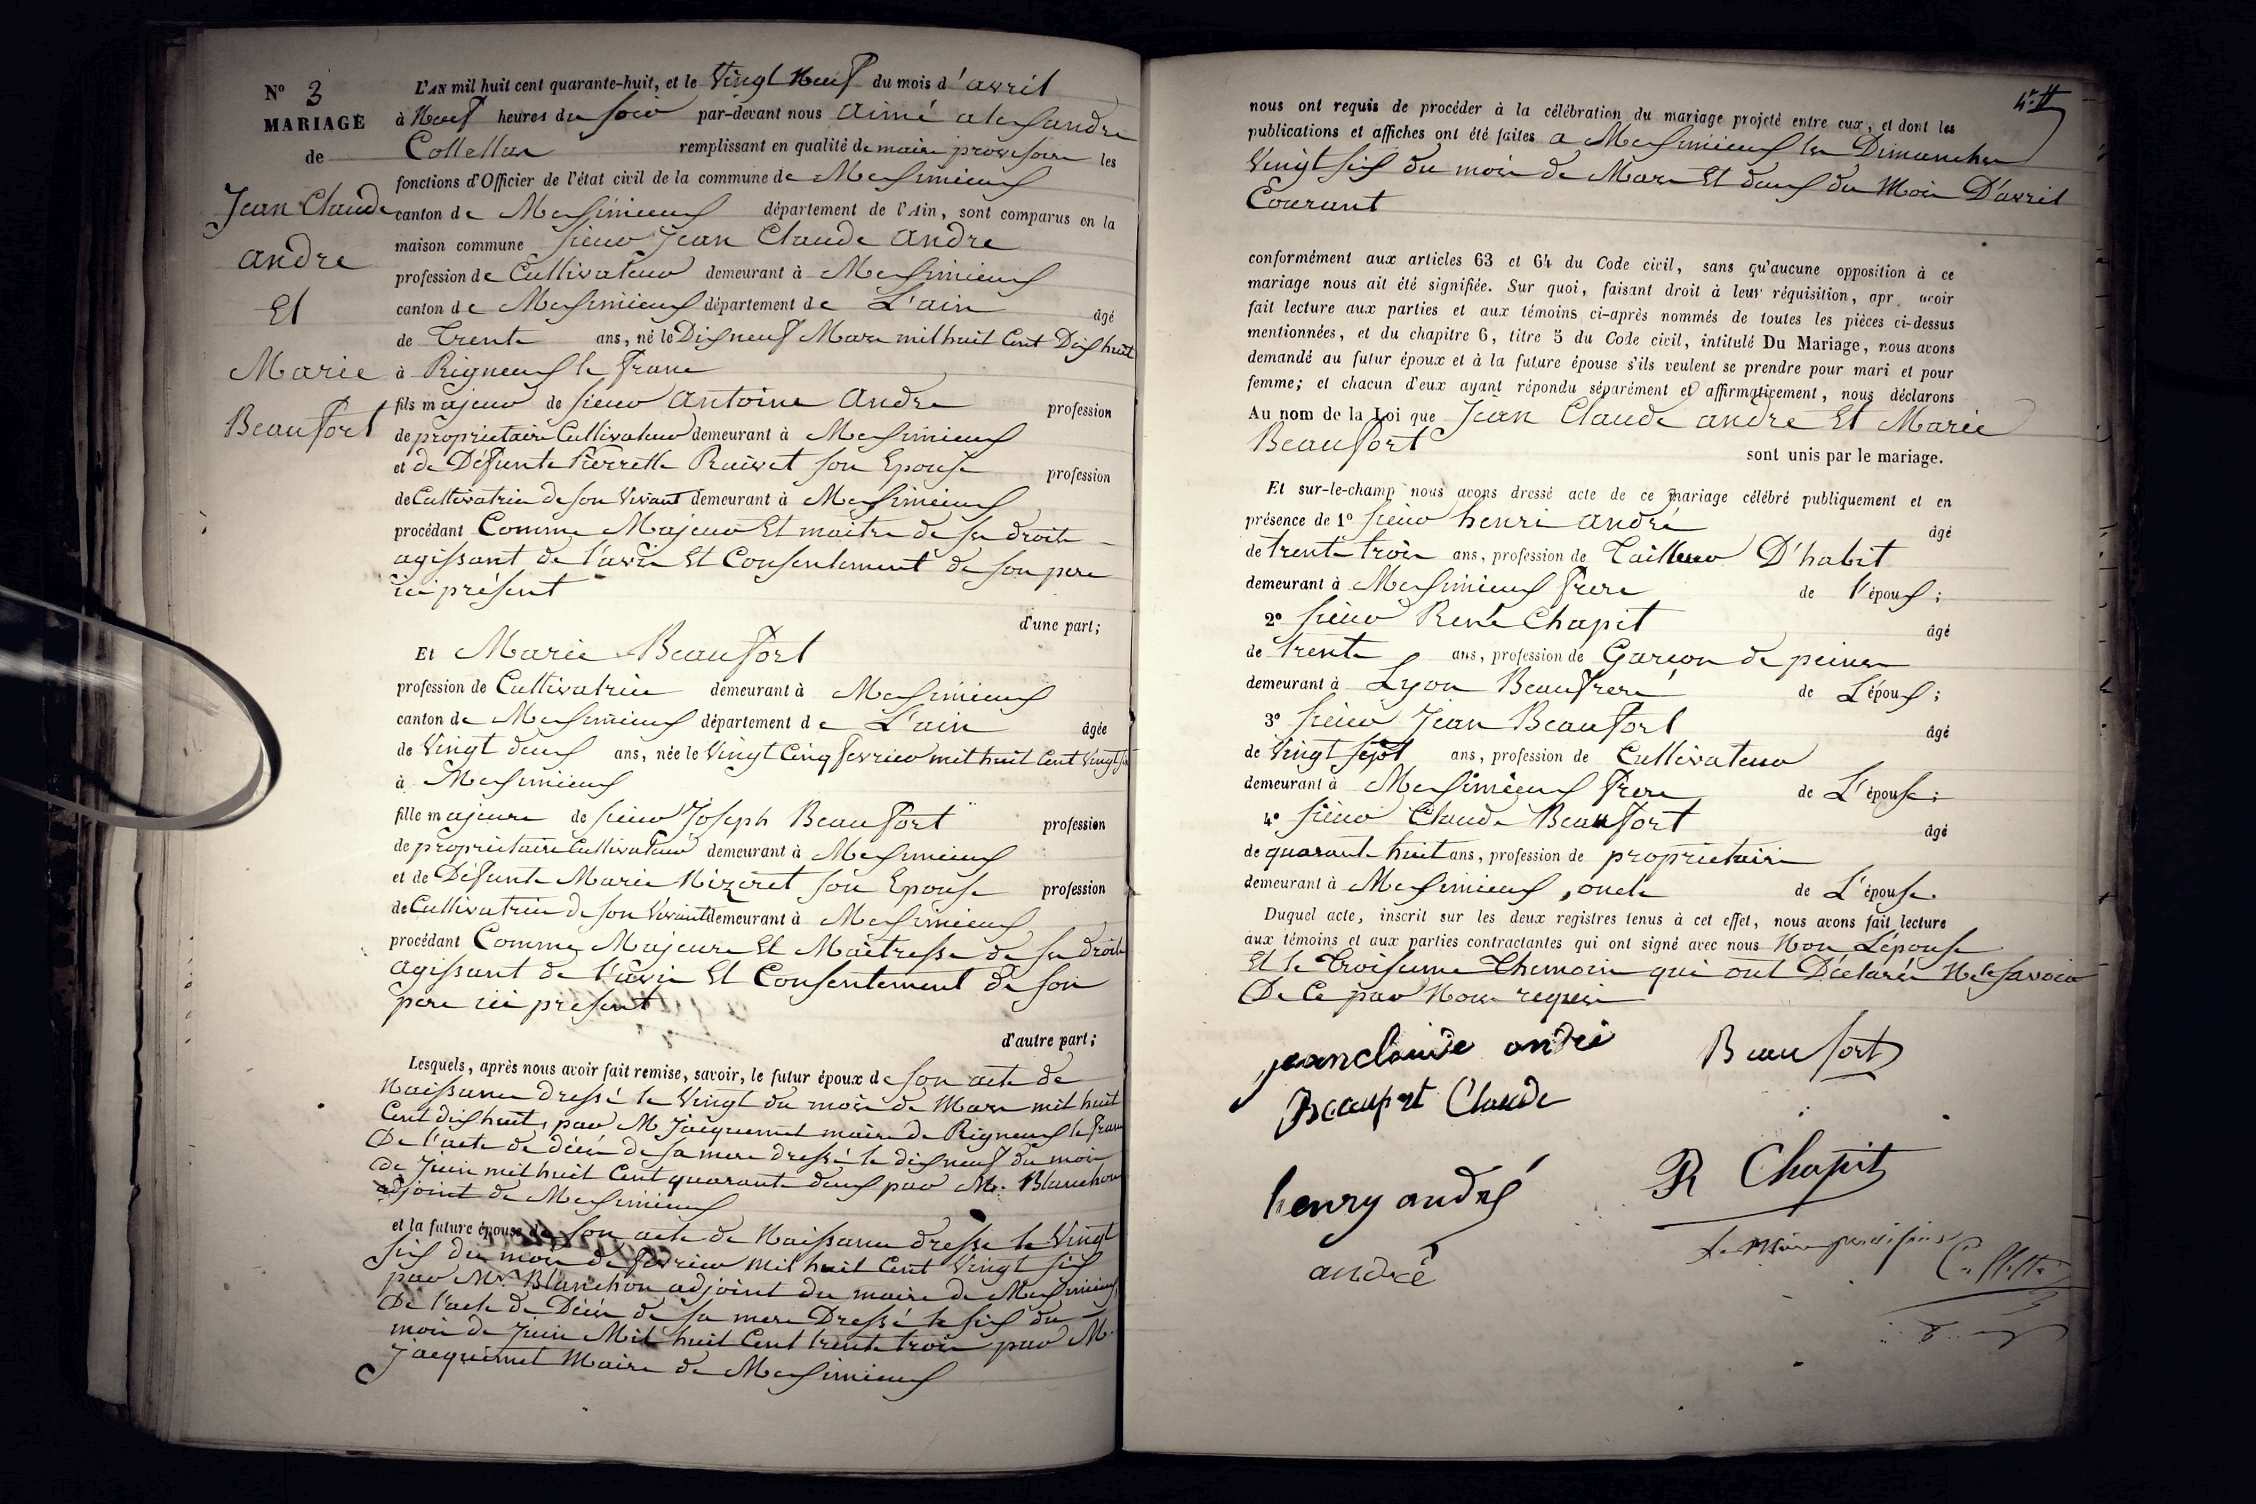 N° 3
MARIAGE
de
Jean Claude
andre
Et
Marie
Beaufort
L'AN mil huit cent quarante-huit, et le Vingt Neuf du mois d'avril
à Neuf heures du soir par-devant nous Aimé alexandre
remplissant en qualité de maire provisoire les
fonctions d'Officier de l'état civil de la commune de Meximieux
canton de Meximieux département de l'Ain, sont comparus en la
maison commune sieur Jean Claude andre
profession de Cultivateur demeurant à Meximieux
canton de Meximieux département de L'ain âgé
de Trente ans, né le Dix neuf Mars mil huit Cent Dix huit
à Rigneux le franc
fils majeur de sieur Antoine Andre profession
de proprietaire Cultivateur demeurant à Meximieux
et de Défunte Pierrette son Epouse profession
de Cultivatrice de son Vivant demeurant à Meximieux
procédant Comme Majeur Et maitre de ses droits
agissant de l'avis Et Consentement de son pere
ici présent
d'une part;
Et Marie Beaufort
profession de Cultivatrice demeurant à Meximieux
canton de Meximieux département de L'ain âgée
de Vingt deux ans, née le Vingt Cinq fevrier mil huit Cent Vingt six
à Meximieux
fille majeure de sieur Joseph Beaufort profession
de proprietaire Cultivateur demeurant à Meximieux
et de Défunte Marie Mizeret son Epouse profession
de Cultivatrice de son Vivant demeurant à Meximieux
procédant Comme Majeure Et Maitresse de ses droits
agissant de l'avis Et Consentement de son
pere ici present
d'autre part;
Lesquels, après nous avoir fait remise, savoir, le futur époux de son acte de
Naissance dressé le Vingt du mois de Mars mil huit
Cent dix huit, par M Jacquemet maire de Rigneux le franc
De l'acte de décés de sa mere dressé le dix neuf du mois
de Juin mil huit Cent quarante deux par M. Blanchon
adjoint de Meximieux
et la future épouse de son acte de Naissance dressé le Vingt
six du mois de fevrier mil huit Cent Vingt six
par Mr. Blanchon adjoint du maire de Meximieux
De l'acte de Décés de sa mere Dressé le six du
mois de Juin Mil huit Cent trente trois par M.
Jacquemet Maire de Meximieux
nous ont requis de procéder à la célébration du mariage projeté entre eux, et dont les
publications et affiches ont été faites a Meximieux les Dimanches
Vingt six du mois de Mars Et deux du Mois D'avril
Courant
conformément aux articles 63 et 64 du Code civil, sans qu'aucune opposition à ce
mariage nous ait été signifiée. Sur quoi, faisant droit à leur réquisition, apr avoir
fait lecture aux parties et aux témoins ci-après nommés de toutes les pièces ci-dessus
mentionnées, et du chapitre 6, titre 5 du Code civil, intitulé Du Mariage, nous avons
demandé au futur époux et à la future épouse s'ils veulent se prendre pour mari et pour
femme; et chacun d'eux ayant répondu séparément et affirmativement, nous déclarons
Au nom de la Loi que Jean Claude andre Et Marie
Beaufort
sont unis par le mariage.
Et sur-le-champ nous avons dressé acte de ce mariage célébré publiquement et en
présence de 1° sieur henri andré âgé
de trente trois ans, profession de Tailleur D'habit
demeurant à Meximieux frere de l'époux;
2° sieur René Chapit âgé
de trente ans, profession de Garcon de peines
demeurant à Lyon Beaufrere de L'époux;
3° sieur Jean Beaufort âgé
de Vingt sept ans, profession de Cultivateur
demeurant à Meximieux frere de L'épouse;
4° sieur Claude Beaufort âgé
de quarante huit ans, profession de proprietaire
demeurant à Meximieux, oncle de L'épouse.
Duquel acte, inscrit sur les deux registres tenus à cet effet, nous avons fait lecture
aux témoins et aux parties contractantes qui ont signé avec nous Non L'épouse
Et le Troisieme Themoin qui ont Déclarés Ne le savoir
De Ce par Nous requis
jeanclaude andré
Beaufort
Beaufort Claude
henry andré
R Chapit
andré
Le Maire provisoire